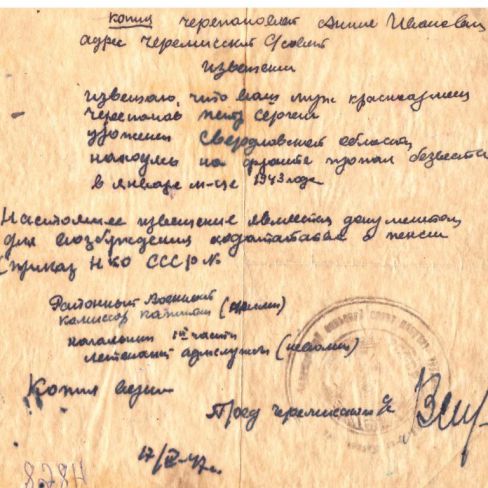 копия Черепановой Анне Ивановне
адрес Черемисский с/совет
извещение
извещаю, что ваш муж красноармеец
Черепанов Петр Сергеев
уроженец Свердловской области
находясь на фронте пропал безвести
в январе м-це 1943 года
Настоящее извещение является документом
для возбуждения ходатайства о пенсии
(приказ НКО СССР №
Районный Военный
комиссар капитан
начальник 1й части
лейтенант адм.службы
Копия верна
Пред Черемисский с/с
17/ 47г.
8284